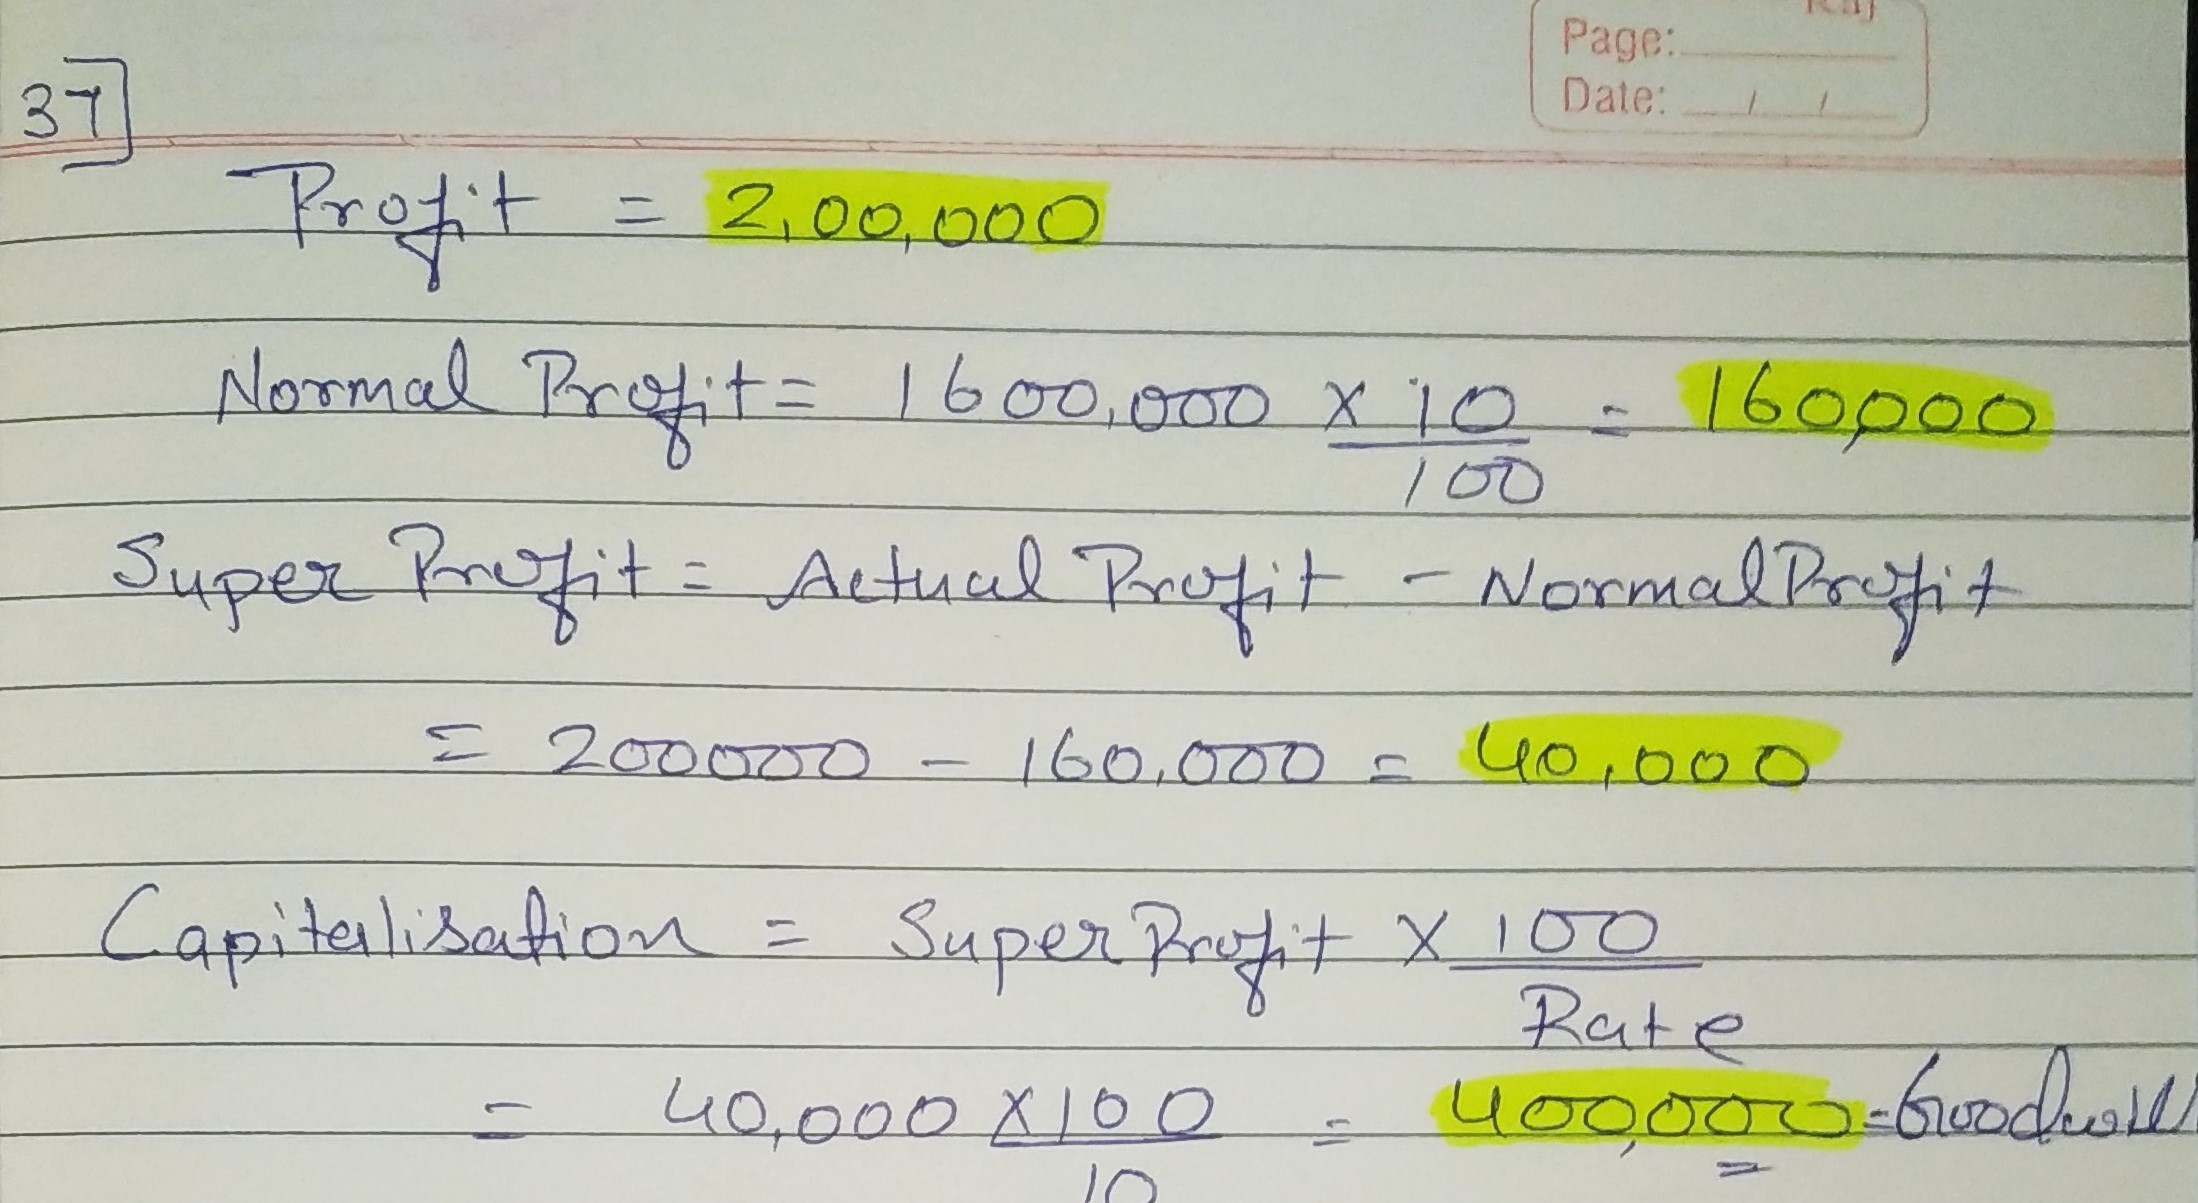 Page:
Date: / /
37]
Profit = 2,00,000
Normal Profit = 1600,000 × 10 = 160,000
100
Super Profit = Actual Profit - Normal Profit
= 200000 - 160,000 = 40,000
Capitalisation = Super Profit × 100
Rate
= 40,000 × 100 = 400,000 = Goodwill
10